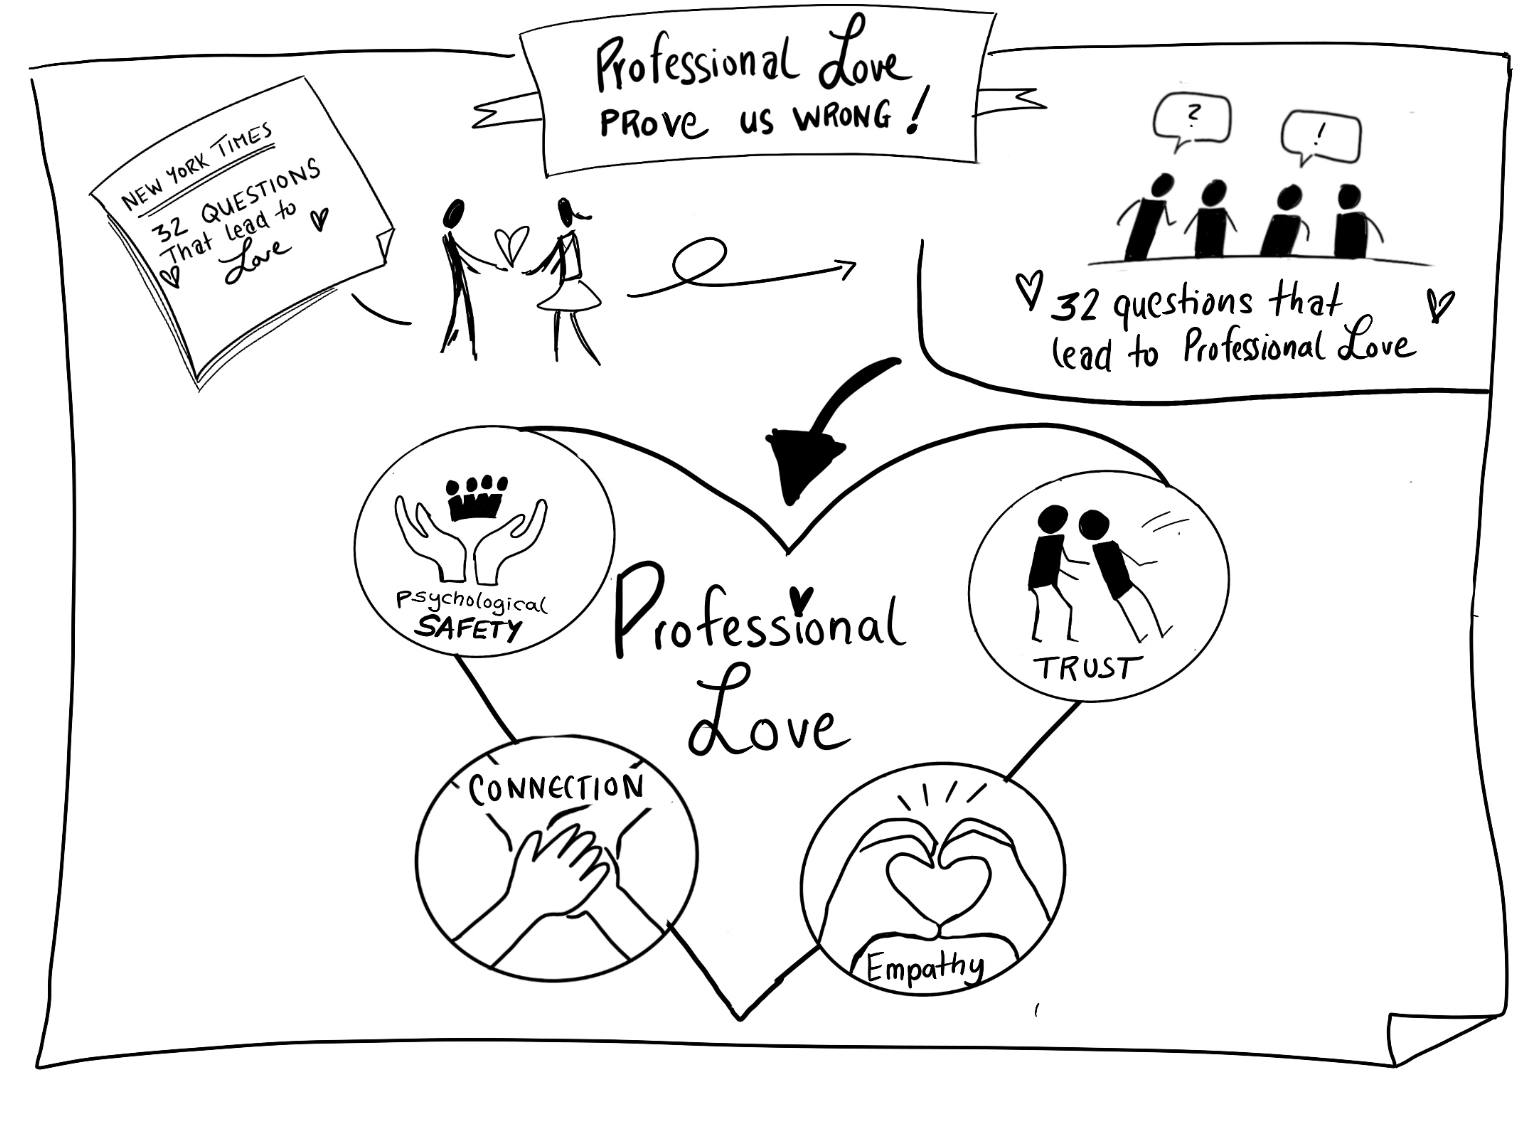 Professional Love
PROVE US WRONG!
NEW YORK TIMES
32 QUESTIONS
That lead to
Love
?
!
32 questions that
lead to Professional Love
Psychological
SAFETY
TRUST
Professional
Love
CONNECTION
Empathy